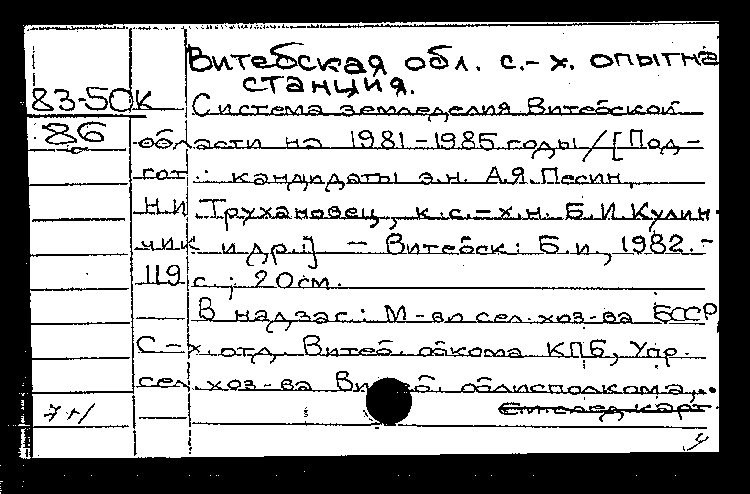 Витебская обл. с.-х. опытная
станция.
83-50К Система земледелия Витебской
86 области на 1981-1985 годы / [Под-
гот.: кандидаты э.н. А.Я. Песин,
Н.И. Трухановец, к.с.-х.н. Б.И. Кулин-
чик и др.] - Витебск: Б.и., 1982.-
119 с.; 20см.
В надзаг.: М-во сел. хоз-ва БССР,
С-х. отд. Витеб. обкома КПБ, Упр.
сел. хоз-ва Витеб. облисполкома,..
См. след. карт.